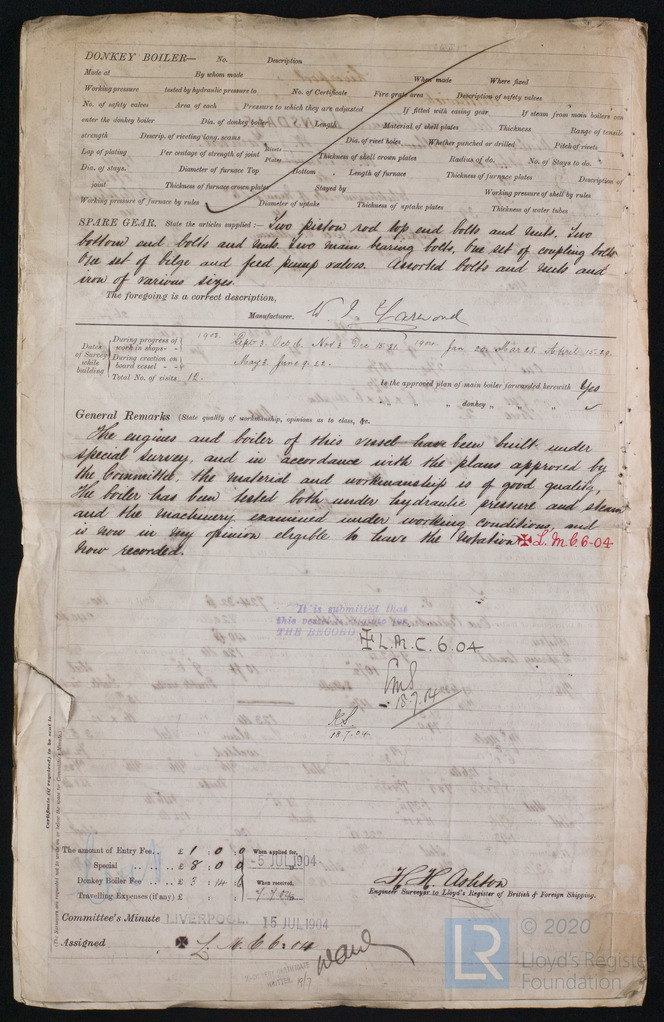 DONKEY BOILER— No. Description
Made at By whom made When made Where fixed
Working pressure tested by hydraulic pressure to No. of Certificate Fire grate area Description of safety valves
No. of safety valves Area of each Pressure to which they are adjusted If fitted with easing gear If steam from main boilers can
enter the donkey boiler Dia. of donkey boiler Length Material of shell plates Thickness Range of tensile
strength Descrip. of riveting long. seams Dia. of rivet holes Whether punched or drilled Pitch of rivets
Lap of plating Per centage of strength of joint Rivets Plates Thickness of shell crown plates Radius of do. No. of Stays to do.
Dia. of stays. Diameter of furnace Top Bottom Length of furnace Thickness of furnace plates Description of
joint Thickness of furnace crown plates Stayed by Working pressure of shell by rules
Working pressure of furnace by rules Diameter of uptake Thickness of uptake plates Thickness of water tubes
SPARE GEAR. State the articles supplied:— Two piston rod top end bolts and nuts. Two
bottom end bolts and nuts. Two main bearing bolts, One set of coupling bolts
One set of bilge and feed pump valves. Assorted bolts and nuts and
iron of various sizes.
The foregoing is a correct description,
Manufacturer. W. J. Harwood
Dates of Survey while building
During progress of work in shops - - 1903. Sept 2. Oct 6. Nov 3 Dec 18.31. 1904. Jan 20 Mar 28. April 15.29.
During erection on board vessel - - - May 2. June 9. 22.
Total No. of visits. 12.
Is the approved plan of main boiler forwarded herewith Yes
" " " donkey " " " ✓
General Remarks (State quality of workmanship, opinions as to class, &c.
The engines and boiler of this vessel have been built under
special survey, and in accordance with the plans approved by
the Committee. the material and workmanship is of good quality,
The boiler has been tested both under hydraulic pressure and steam
and the machinery examined under working conditions, and
is now in my opinion eligible to have the notation ✠ L.M.C 6-04
now recorded.
It is submitted that
this vessel is eligible for
THE RECORD ✠ L.M.C. 6.04
18.7.04
18.7.04
Certificate (if required) to be sent to
(The Surveyors are requested not to write on or below the space for Committee's Minute.)
The amount of Entry Fee.. £ 1 : 0 : 0 When applied for,
Special .. .. £ 8 : 0 : 0 -5 JUL 1904
Donkey Boiler Fee .. .. £ 3 : 4 : 6 When received,
Travelling Expenses (if any) £ : :
H. H. Ashton
Engineer Surveyor to Lloyd's Register of British & Foreign Shipping.
Committee's Minute LIVERPOOL. 15 JUL 1904
Assigned ✠ L. M. C 6. 04
© 2020
LR Lloyd's Register
Foundation